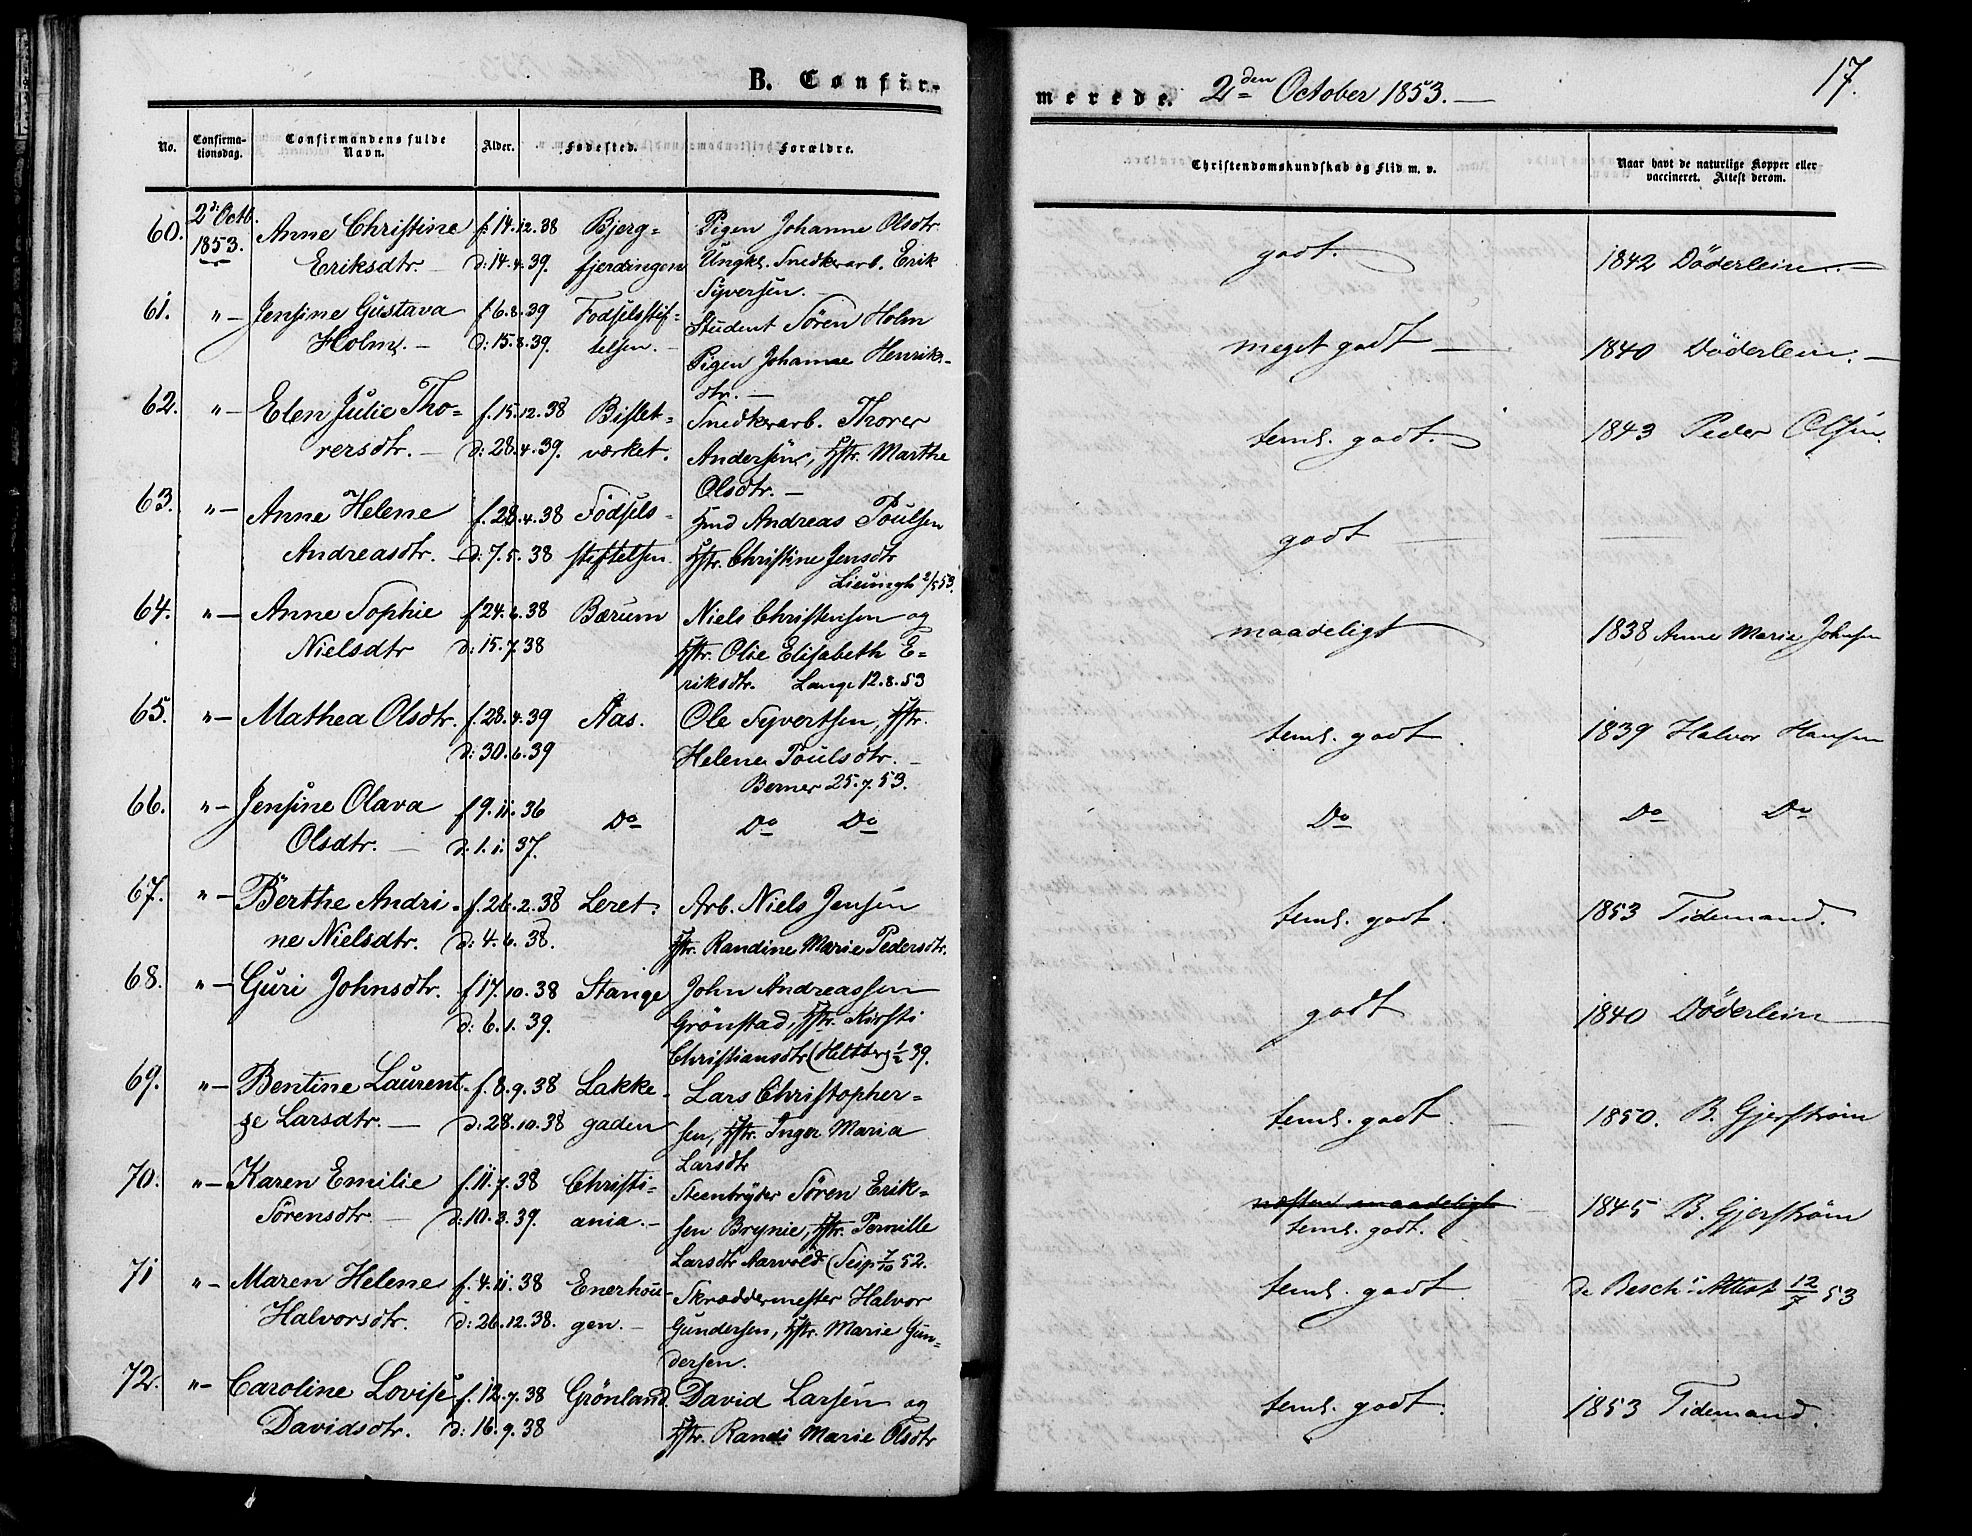 B. Confir-
merede. 2den October 1853. —
17.
No. Confirma-tionsdag. Confirmandens fulde Navn. Alder. Fødested. Forældre.
Christendomskundskab og Flid m. v. Naar havt de naturlige Kopper eller vaccineret. Attest derom.
60. 2d: Octb. Anne Christine f: 14.12.38 Bjerg= Pigen Johanne Olsdtr.
1853. Eriksdtr. — d: 14.4.39. fjerdingen Ungk. Snedkerarb. Erik
Syversen. —
godt. 1842 Döderlein. —
61. " — Jensine Gustava f 6.8.39 Fødselsstif= Student Sören Holm
Holm. — d: 15.8.39. telsen. — Pigen Johanne Henriks-
dtr. —
meget godt — 1840 Döderlein. —
62. " — Elen Julie Tho= f. 15.12.38 Bislet- Snedkerarb. Thorer
rersdtr. — d: 28.4.39. værket. Andersen, Hstr. Marthe
Olsdtr. —
teml. godt. 1843 Peder Olsen.
63. " — Anne Helene f. 28.4.38 Födsels- Hmd Andreas Poulsen
Andreasdtr. — d: 7.5.38 stiftelsen. Hstr. Christine Jensdtr
godt
64. " — Anne Sophie f 24.6.38 Bærum Niels Christensen og
Nielsdtr d: 15.7.38 Hstr. Olie Elisabeth E=
riksdtr. Lange 12.8.53
maadeligt 1838 Anne Marie Johnsen
65. " — Mathea Olsdtr. f. 28.4.39 Aas. Ole Syvertsen, Hstr.
d: 30.6.39 Helene Poulsdtr. —
Berner 25.7.53.
teml. godt. 1839 Halvor Hansen
66. " — Jensine Olava f 9.11.36 Do Do Do
Olsdtr. — d: 1.1.37.
Do Do Do
67. " — Berthe Andri- f. 26.2.38 Leret. Arb. Niels Jensen
ne Nielsdtr. d: 4.6.38. Hstr. Randine Marie Pedersdtr.
teml. godt. 1853 Tidemand.
68. " — Guri Johnsdtr. f 17.10.38 Stange John Andreassen
d: 6.1.39. Grönstad, Hstr. Kirsti
Christiansdtr (Heltberg 1/2 39.
godt 1840 Döderlein —
69. " — Bentine Laurent- f. 8.9.38 Lakke- Lars Christopher=
ze Larsdtr. — d: 28.10.38 gaden sen, Hstr. Inger Maria
Larsdtr
teml. godt. 1850. B. Gjerström
70. " — Karen Emilie f. 11.7.38 Christi- Steenbryder Sören Erik=
Sörensdtr. — d: 10.3.39. ania. — sen Brynie, Hstr. Pernille
Larsdtr Aarvold (Seip 7/10 52.
næsten maadeligt
teml. godt. 1845 B. Gjerström
71 " — Maren Helene f. 4.11.38 Enerhou- Skræddermester Halvor
Halvorsdtr. d: 26.12.38. gen. — Gundersen, Hstr. Marie Gun=
dersen.
teml. godt. Attest 12/7 53
72. " — Caroline Lovise f. 12.7.38 Grönland. David Larsen og
Davidsdtr. d: 16.9.38 Hstr. Randi Marie Olsdtr
teml. godt. 1853 Tidemand.